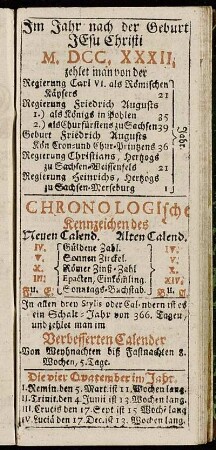 Im Jahr nach der Geburt
JEsu Christi
M. DCC, XXXII,
zehlet man von der
Regierung Carl VI. als Römischen
Käysers 21
Regierung Friedrich Augusts
1.) als Königs in Pohlen 35
2.) als Churfürstens zu Sachsen 39
Geburt Friedrich Augusts
Kön Cron- und Chur-Printzens 36
Regierung Christians, Hertzogs
zu Sachsen-Weissenfels 21
Regierung Heinrichs, Hertzogs
zu Sachsen-Merseburg 1
Jahr.
CHRONOLOGische
Kennzeichen des
Neuen Calend. Alten Calend.
IV. Güldene Zahl. IV.
V. Sonnen Zirckel. V.
X. Römer Zinß-Zahl X.
III. Epacten, Einkömling. XIV.
F u. E. Sonntags-Buchstab. B u. A
In allen drey Stylis oder Calendern ist es
ein Schalt-Jahr von 366. Tagen,
und zehlet man im
Verbesserten Calender
Von Weyhnachten biß Fastnachten 8.
Wochen, 5. Tage.
Die vier Quatember im Jahr.
I. Remin. den 5. Mart. ist 11. Wochen lang.
II. Trinit. den 4. Junii ist 13. Wochen lang.
III. Crucis den 17. Sept ist 15 Woch. lang
IV. Luciä den 17. Dec. ist 13. Wochen lang.